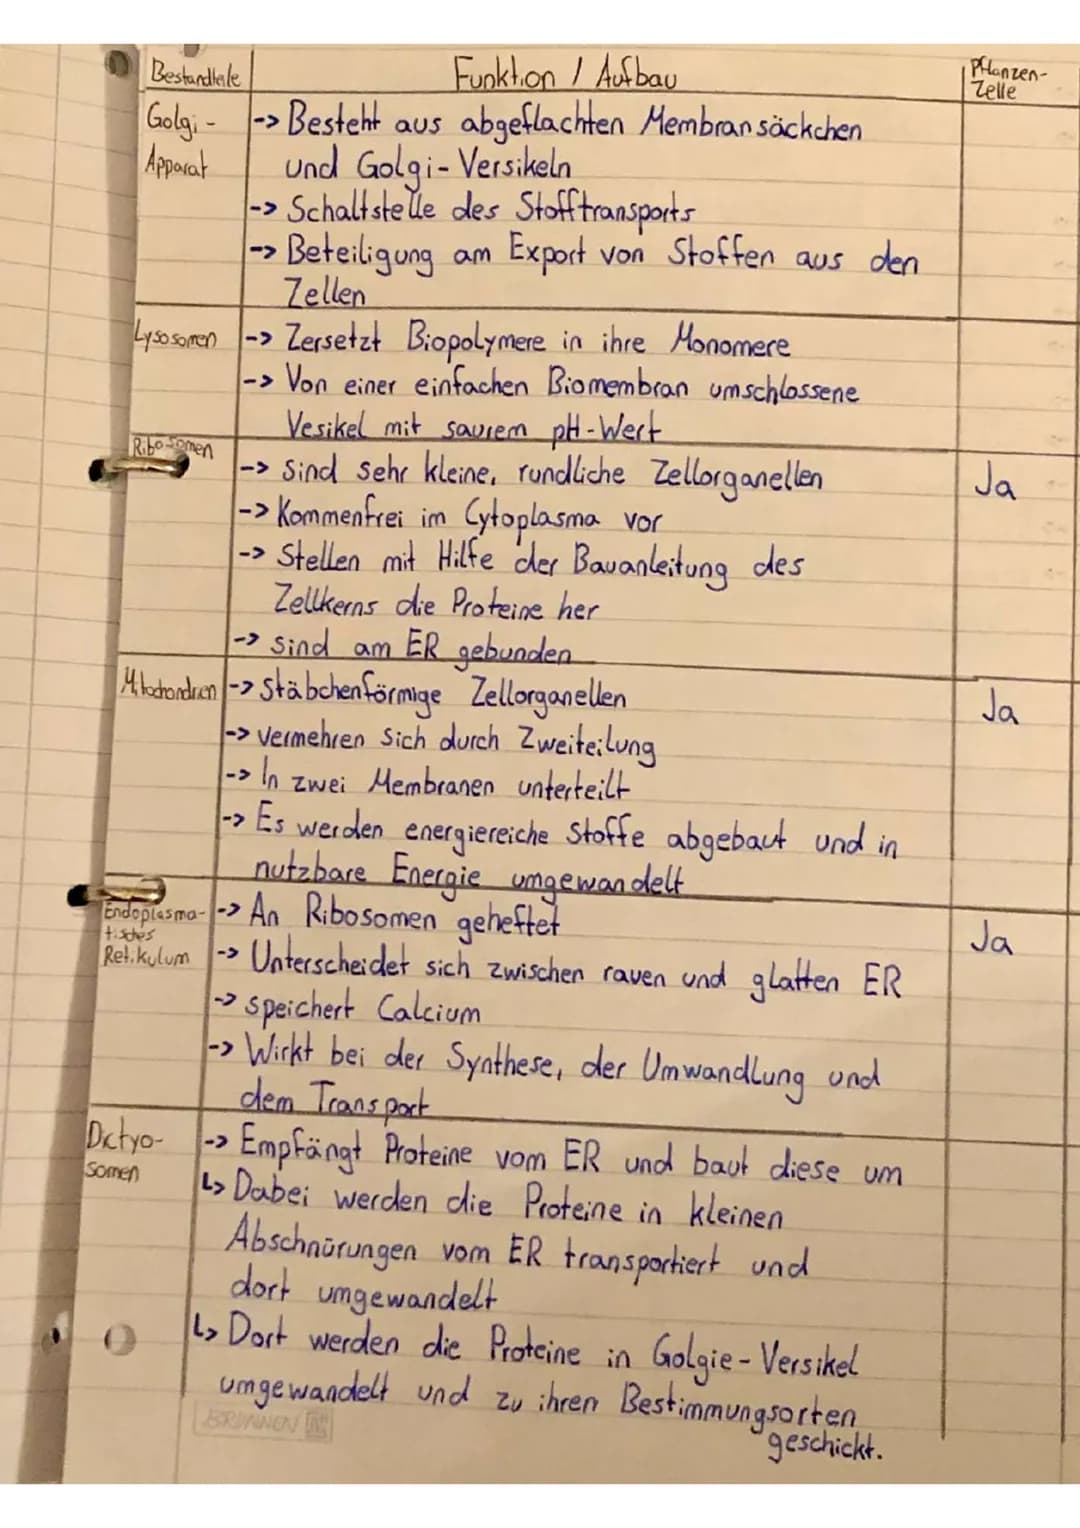 Bestandteile Funktion / Aufbau Pflanzen-
Zelle
Golgi- -> Besteht aus abgeflachten Membransäckchen
Apparat und Golgi-Versikeln
-> Schaltstelle des Stofftransports
-> Beteiligung am Export von Stoffen aus den
Zellen
Lysosomen -> Zersetzt Biopolymere in ihre Monomere
-> Von einer einfachen Biomembran umschlossene
Vesikel mit saurem pH-Wert
Ribosomen
-> sind sehr kleine, rundliche Zellorganellen Ja
-> Kommenfrei im Cytoplasma vor
-> Stellen mit Hilfe der Bauanleitung des
Zellkerns die Proteine her
-> sind am ER gebunden
Mitochondrien -> Stäbchenförmige Zellorganellen Ja
-> vermehren sich durch Zweiteilung
-> In zwei Membranen unterteilt
-> Es werden energiereiche Stoffe abgebaut und in
nutzbare Energie umgewandelt
Endoplasma- -> An Ribosomen geheftet Ja
tisches
Retikulum -> Unterscheidet sich zwischen rauen und glatten ER
-> speichert Calcium
-> Wirkt bei der Synthese, der Umwandlung und
dem Transport
Dictyo- -> Empfängt Proteine vom ER und baut diese um
somen ↳ Dabei werden die Proteine in kleinen
Abschnürungen vom ER transportiert und
dort umgewandelt
↳ Dort werden die Proteine in Golgie-Versikel
umgewandelt und zu ihren Bestimmungsorten
geschickt.
BRUNNEN